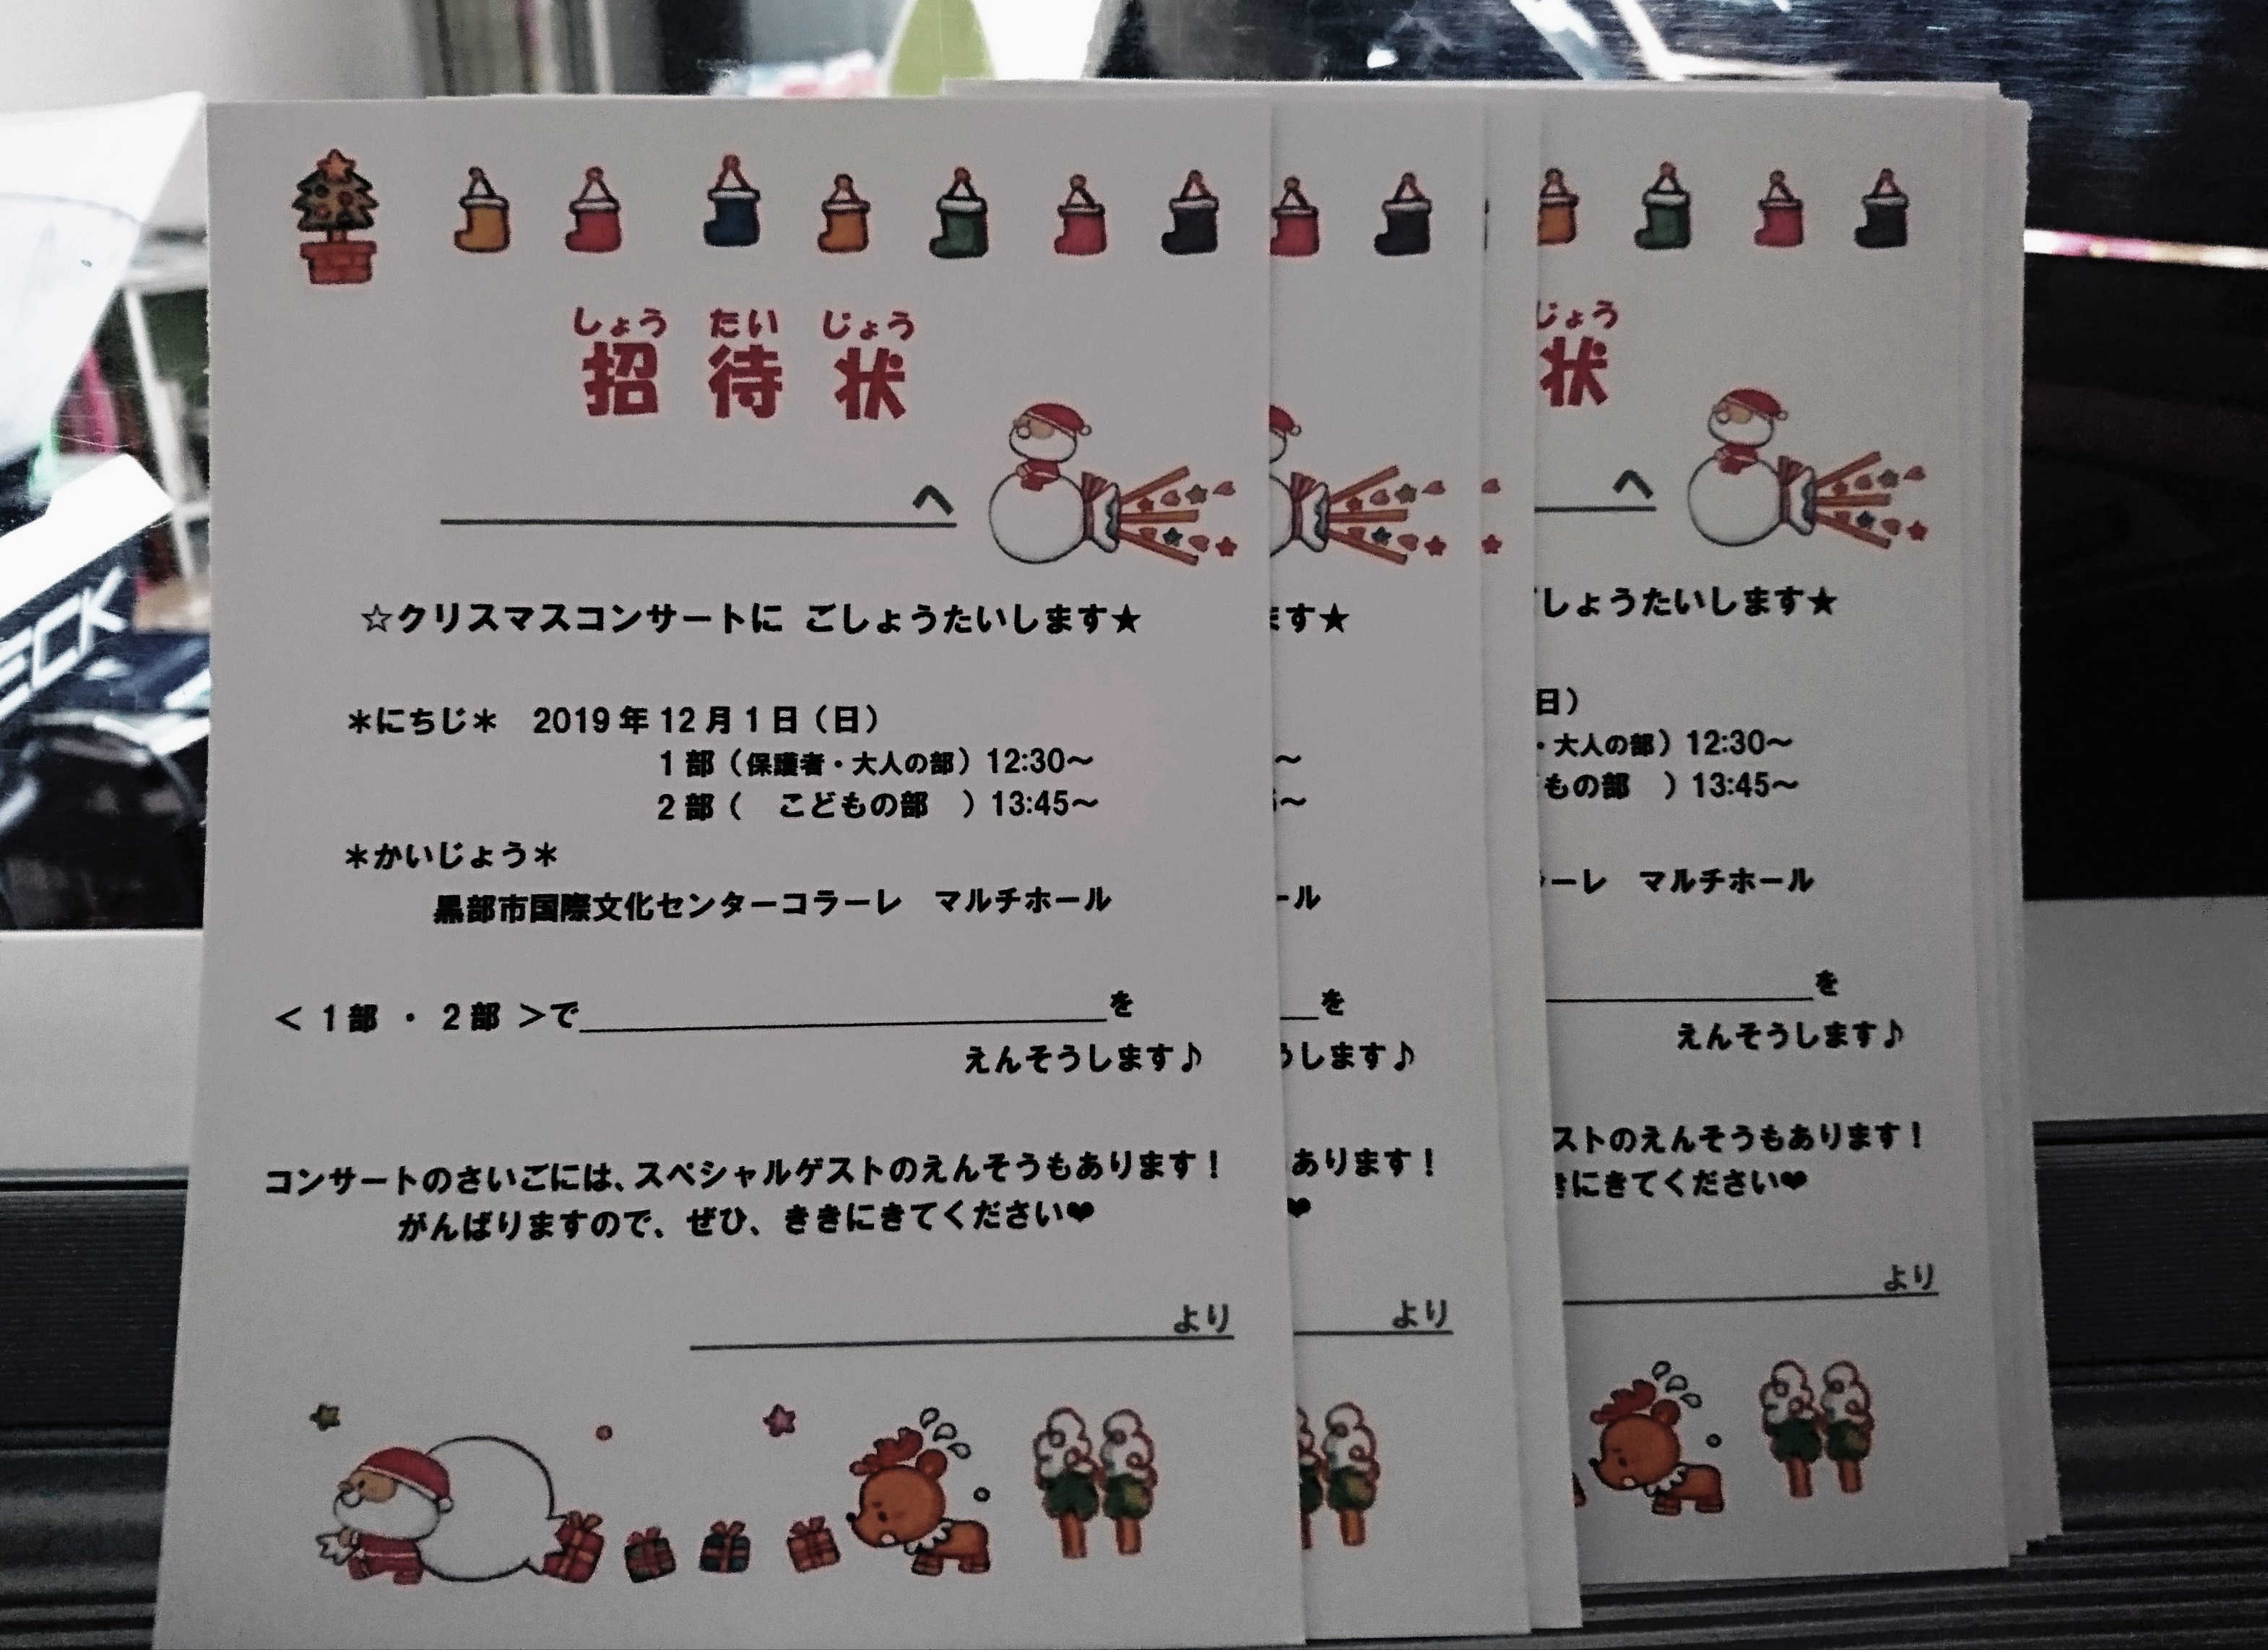 しょう たい じょう
招 待 状
へ
☆クリスマスコンサートに ごしょうたいします★
＊にちじ＊ 2019年12月1日（日）
1部（保護者・大人の部）12:30～
2部（ こどもの部 ）13:45～
＊かいじょう＊
黒部市国際文化センターコラーレ マルチホール
＜ 1部 ・ 2部 ＞で を
えんそうします♪
コンサートのさいごには、スペシャルゲストのえんそうもあります！
がんばりますので、ぜひ、ききにきてください❤
より
ます★
～
～
ール
を
うします♪
あります！
❤
より
じょう
状
へ
しょうたいします★
日）
・大人の部）12:30～
もの部 ）13:45～
ーレ マルチホール
を
えんそうします♪
ストのえんそうもあります！
きにきてください❤
より
ECK